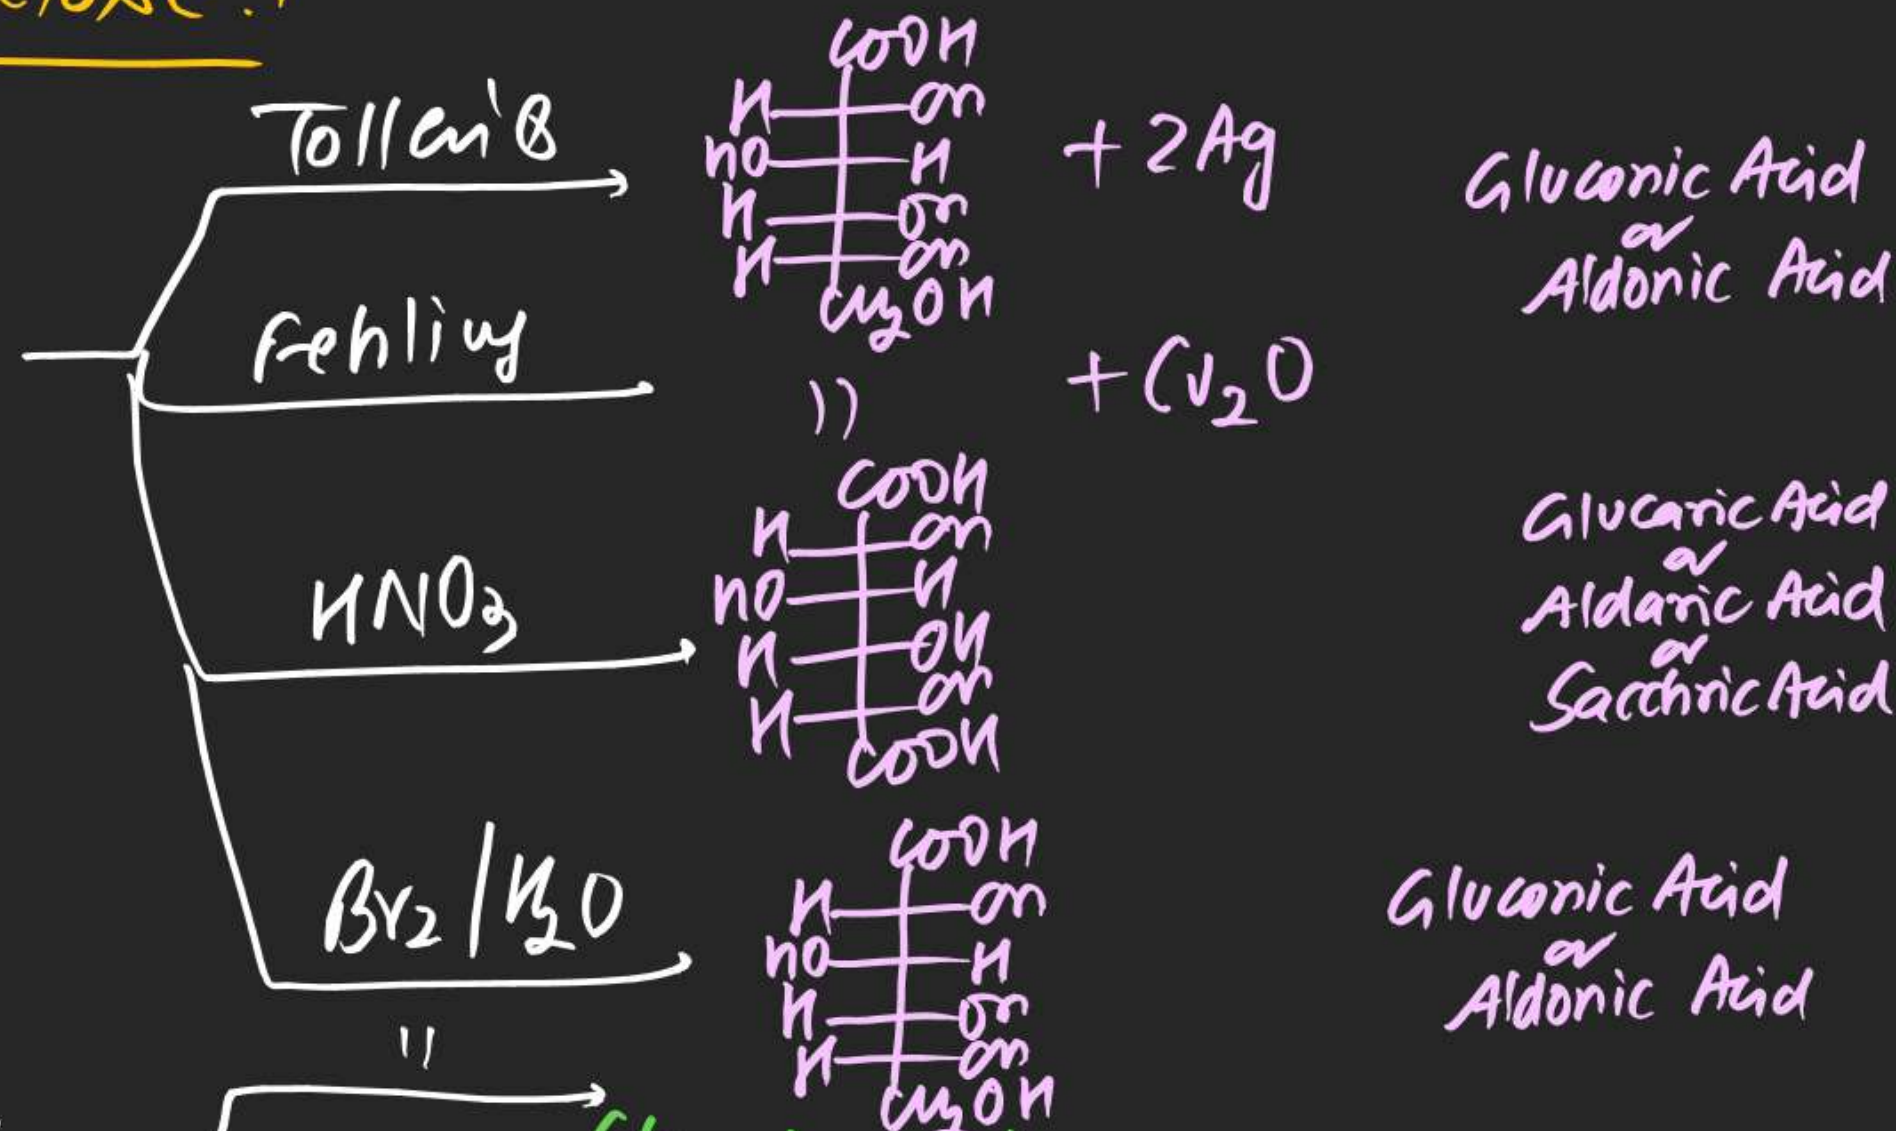 Tollen's
COOH
H OH
HO H
H OH
H OH
CH2OH
+ 2Ag
Gluconic Acid
or
Aldonic Acid
Fehling
"
+ Cu2O
HNO3
COOH
H OH
HO H
H OH
H OH
COOH
Glucaric Acid
or
Aldaric Acid
or
Sacchric Acid
Br2/H2O
COOH
H OH
HO H
H OH
H OH
CH2OH
Gluconic Acid
or
Aldonic Acid
"